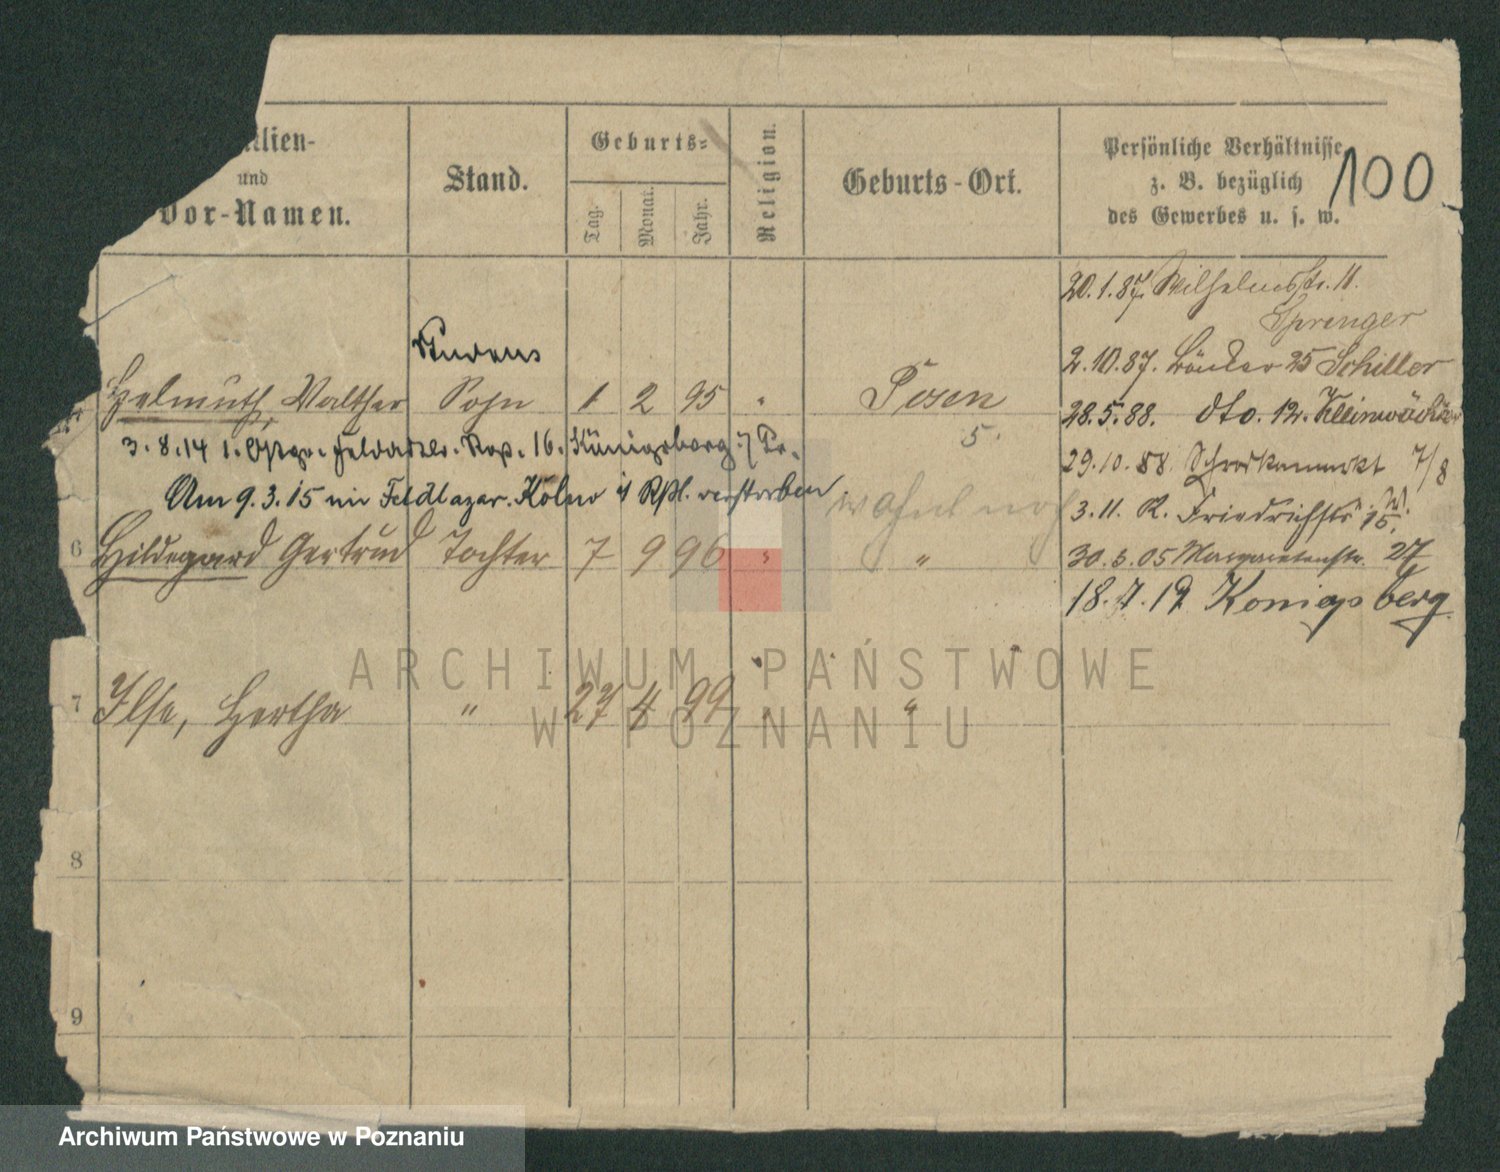 ilien-
und
Vor-Namen.
Stand.
Geburts-
Tag.
Monat.
Jahr.
Religion.
Geburts-Ort.
Persönliche Verhältnisse
z. B. bezüglich
des Gewerbes u. s. w.
100
20.1.87. Wilhelmstr. 11.
Sprenger
2.10.87. Bäcker 25 Schiller
28.5.88. dto. 12. Kleinwächter
29.10.88. 7/8
3.11. R. Friedrichstr. 15.
30.6.05 Margaretenstr. 27
18.7.19 Königsberg
Studens
Helmuth, Walther Sohn 1 2 95 " Posen
5.
3.8.14 1. 16. Königsberg i/Pr.
Am 9.3.15 im Feldlazar. Kolno i/ Rßl. verstorben
wohnt noch
6 Hildegard Gertrud Tochter 7 9 96 " "
7 Ilse, Hertha " 27 4 99 " "
8
9
ARCHIWUM PAŃSTWOWE
W POZNANIU
Archiwum Państwowe w Poznaniu